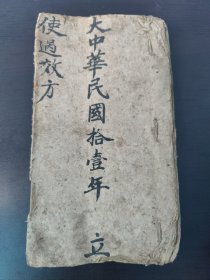 大中華民國拾壹年 立
使過效方